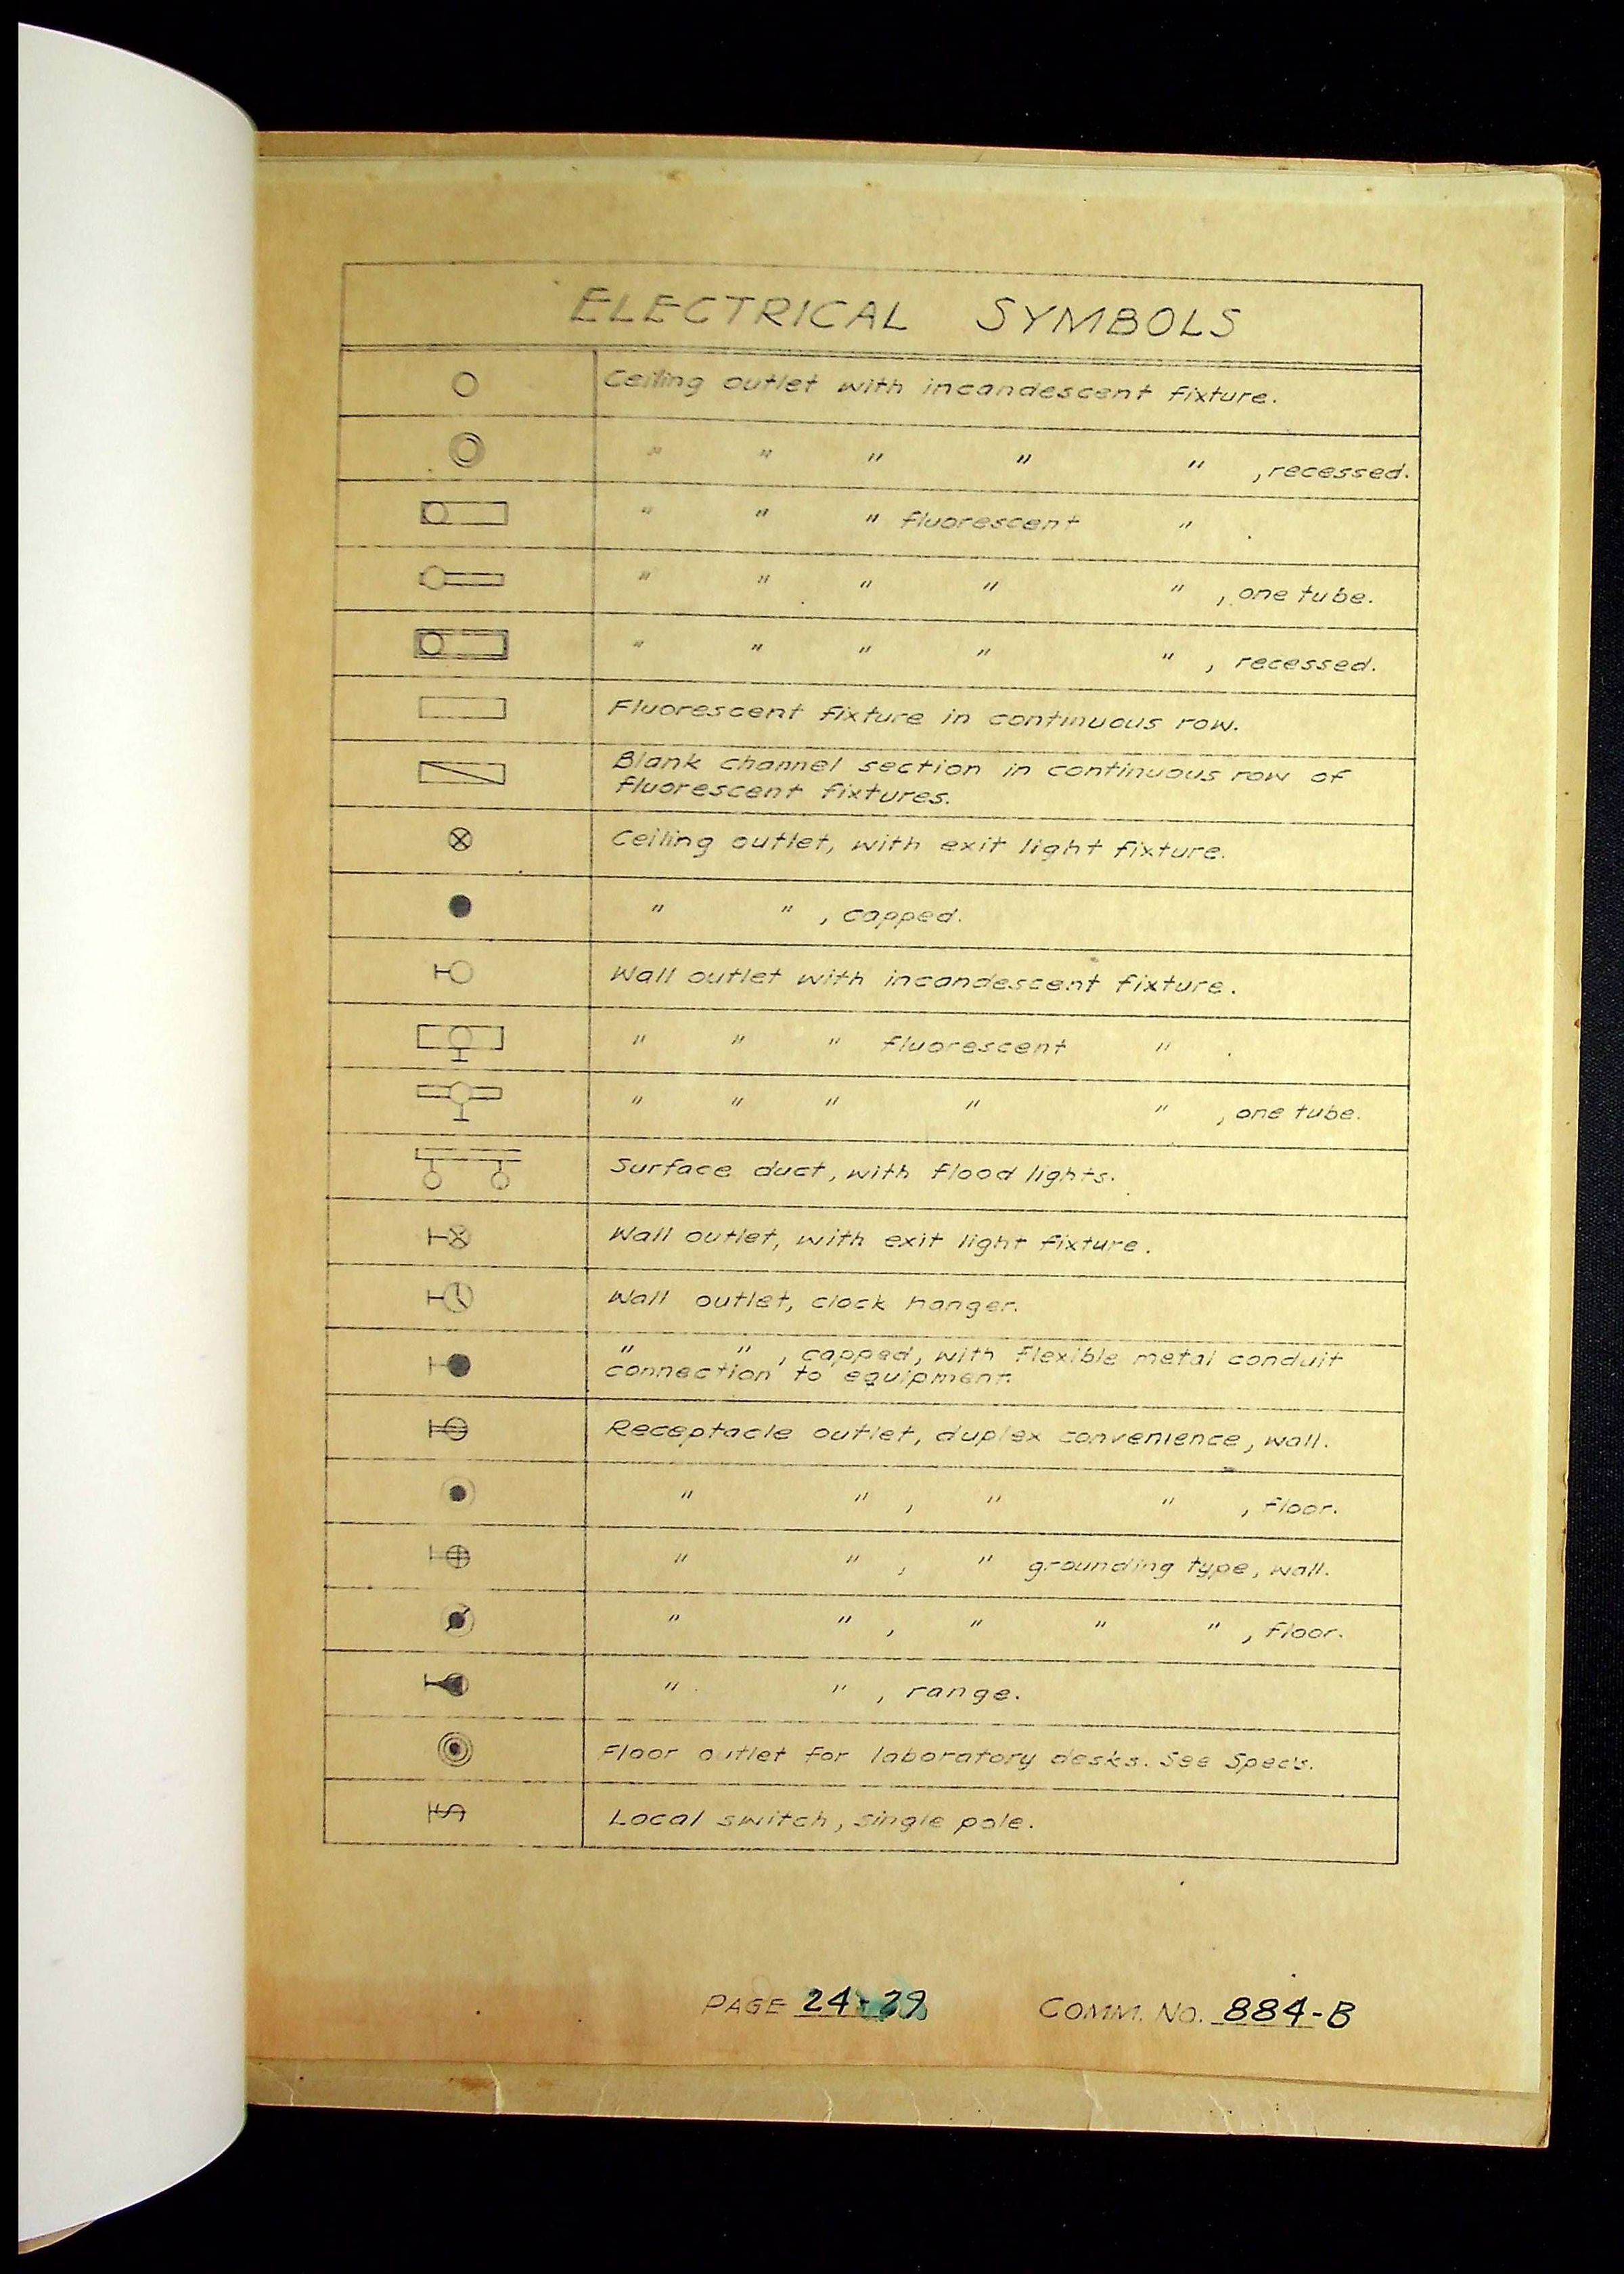 ELECTRICAL SYMBOLS
Ceiling outlet with incandescent fixture.
" " " " " , recessed.
" " " fluorescent " .
" " " " " , one tube.
" " " " " , recessed.
Fluorescent fixture in continuous row.
Blank channel section in continuous row of
fluorescent fixtures.
Ceiling outlet, with exit light fixture.
" " , capped.
Wall outlet with incandescent fixture.
" " " fluorescent " .
" " " " " , one tube.
Surface duct, with flood lights.
Wall outlet, with exit light fixture.
Wall outlet, clock hanger.
" " , capped, with flexible metal conduit
connection to equipment.
Receptacle outlet, duplex convenience, wall.
" " , " " , floor.
" " , " grounding type, wall.
" " , " " " , floor.
" " , range.
Floor outlet for laboratory desks. See Spec's.
S
Local switch, single pole.
PAGE 24-29 COMM. NO. 884-B